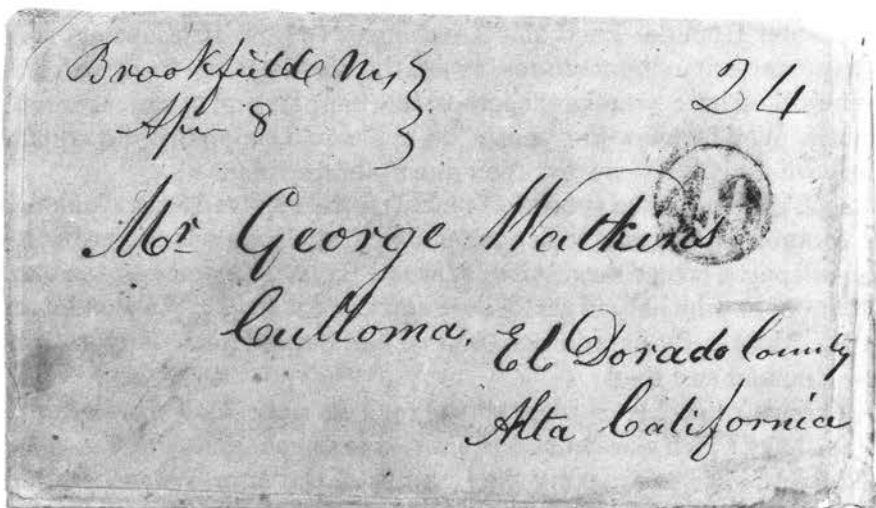 Brookfield NY
Apr 8
24
40
Mr George Watkins
Culloma,
El Dorado County
Alta California